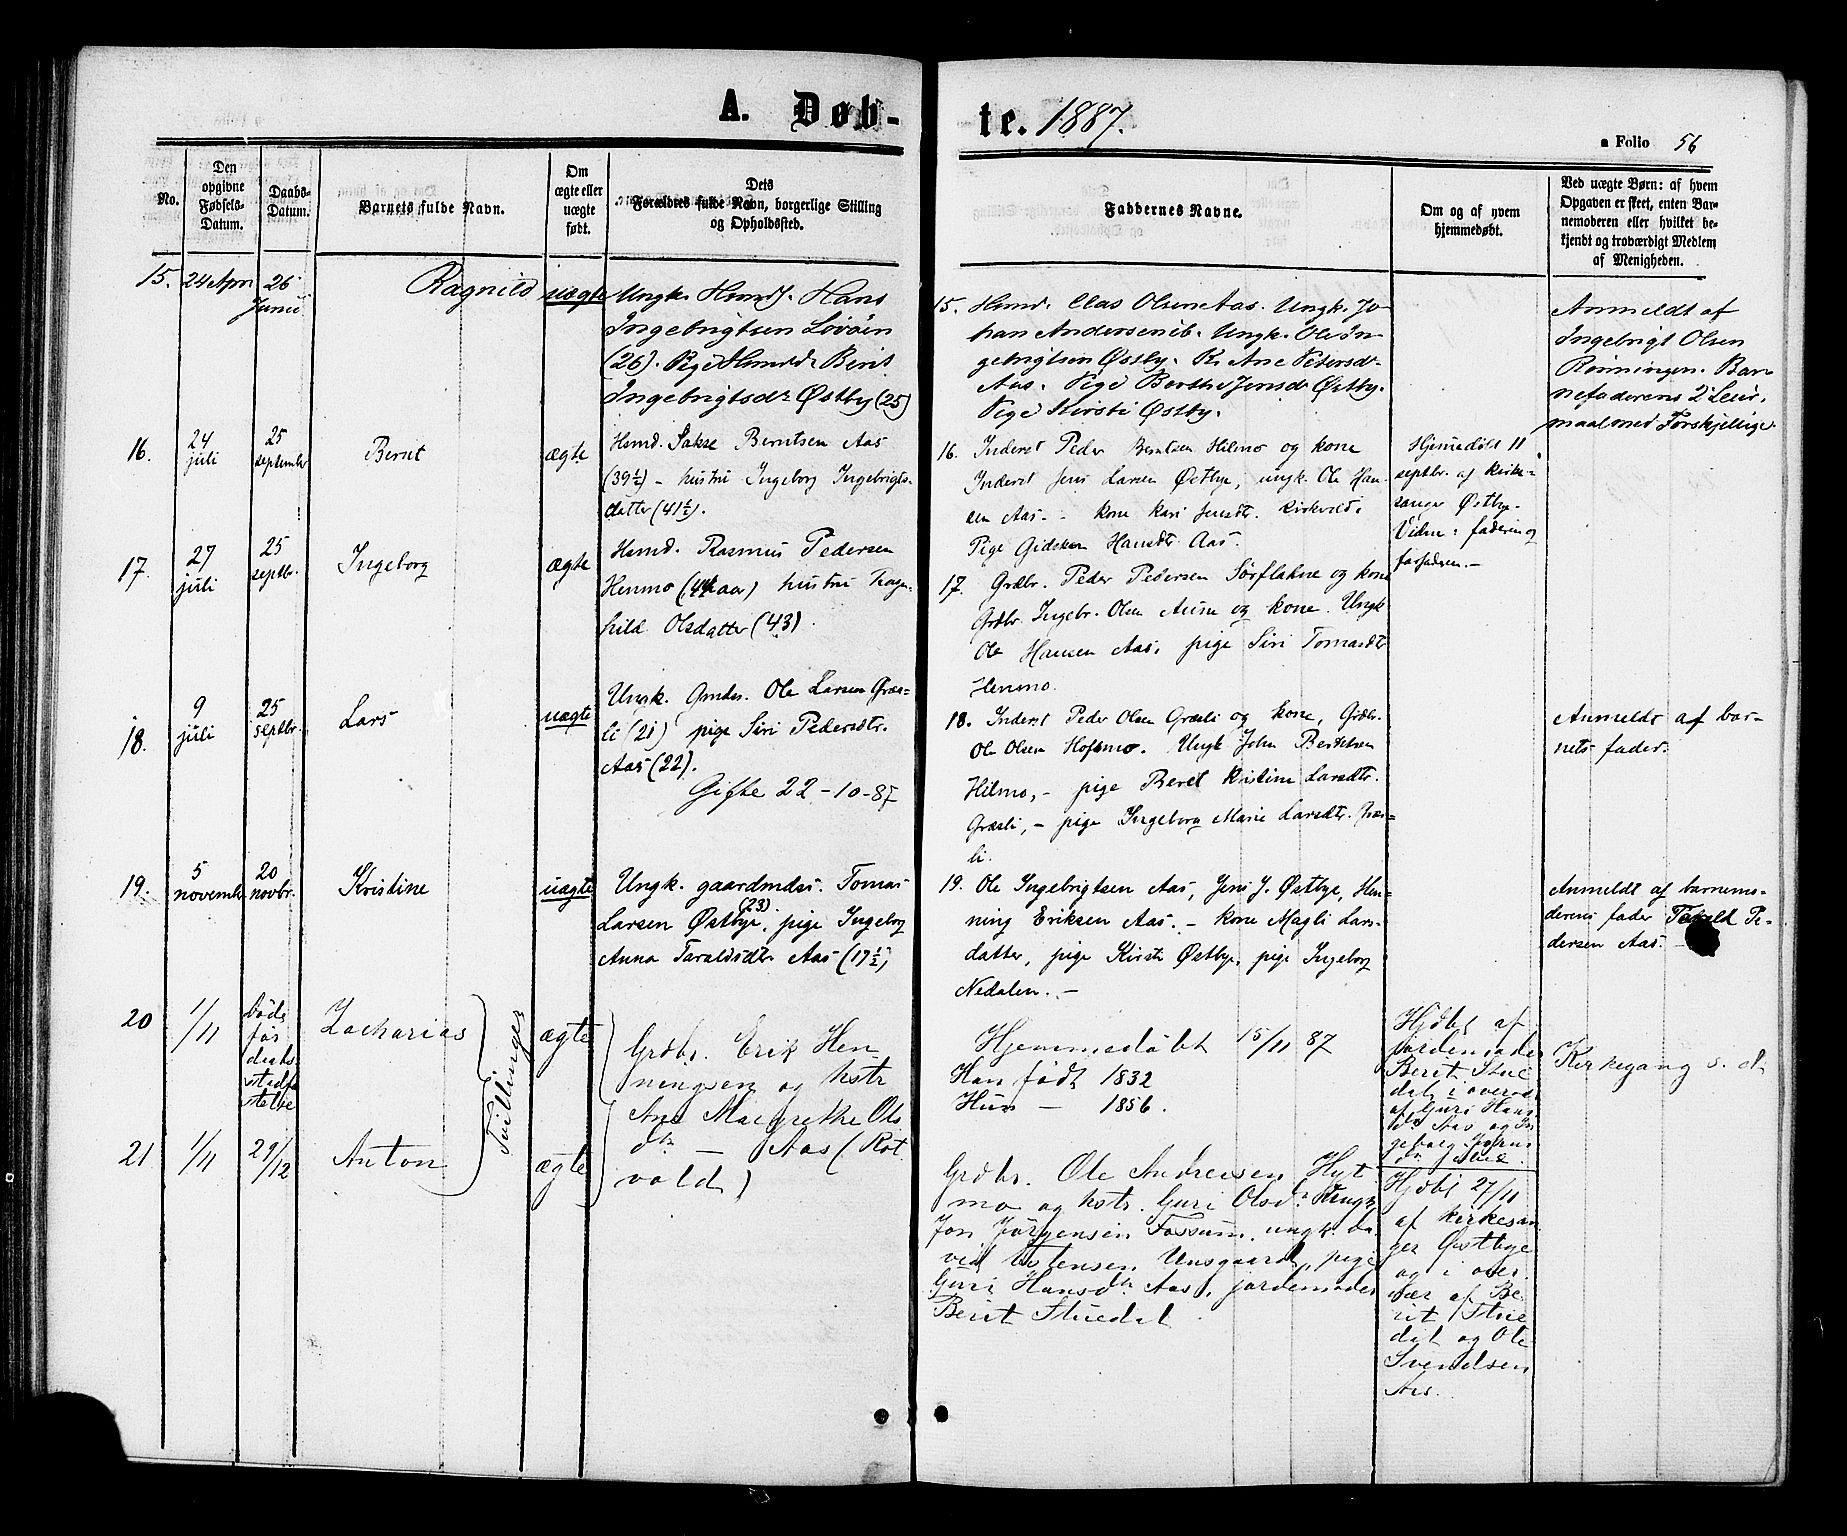 A. Døb-
te. 1887.
a Folio 56
No.
Den opgivne Fødsels-Datum.
Daabs-Datum.
Barnets fulde Navn.
Om ægte eller uægte født.
Dets Forældres fulde Navn, borgerlige Stilling og Opholdssted.
Faddernes Navne.
Om og af hvem hjemmedøbt.
Ved uægte Børn: af hvem Opgaven er skeet, enten Barnemoderen eller hvilket bekjendt og troværdigt Medlem af Menigheden.
15. 24 Apri 26 Junii Ragnild uægte
Ungk. Hsmd. Hans
Ingebrigtsen Løvøin
(26). Pige Hsmdd. Berit
Ingebrigtsdr Østby (25)
15. Hsmd. Clas Olsen Aas. Ungk. Jo-
han Andersen ib. Ungk. Ole In-
gebrigtsen Østby. K. Ane Petersdr
Aas. Pige Berthe Jensdr Østby.
Pige Kirsti Østby.
Anmeldt af
Ingebrigt Olsen
Rønningen. Bar-
nefaderens 2 Leier-
maal med Forskjellige.
16. 24 juli 25 september Berit ægte
Hsmd. Sakse Berntsen Aas
(39½) – hustru Ingeborg Ingebrigts-
datter (41½).
16. Inderst Peder Berntsen Hilmo og kone
Inderst Jens Larsen Østbye, ungk. Ole Han-
sen Aas. – kone Kari Jensdtr. Kirkvold,
Pige Gidsken Hansdtr Aas.
Hjemmedøbt 11
septbr. af kirke-
sanger Østbye.
Vidne: faderen og
farfaderen. –
17. 27 juli 25 septbr. Ingeborg ægte
Hsmd. Rasmus Pedersen
Henmo (44 aar) hustru Ragn-
hild Olsdatter (43).
17. Grdbr. Peder Pedersen Sørflakne og kone
Grdbr. Ingebr. Olsen Aune og kone. Ungk
Ole Hansen Aas, pige Siri Tomasdtr
Henmo.
18. 9 juli 25 septbr. Lars uægte
Ungk. Grnds. Ole Larsen Græs-
li (21) pige Siri Pedersdtr.
Aas (22).
Gifte 22-10-87
18. Inderst Peder Olsen Græsli og kone, Grdbr.
Ole Olsen Hofsmo. Ungk John Bersvendsen
Hilmo, – pige Beret Kristine Larsdtr.
Græsli, – pige Ingeborg Marie Larsdtr. Græs-
li.
Anmeldt af bar-
nets fader.
19. 5 novembr 20 novbr. Kristine uægte
Ungk. gaardmds. Tomas
Larsen Østbye (23), pige Ingeborg
Anna Taraldsdtr Aas (17½)
19. Ole Ingebrigtsen Aas, Jens J. Østbye, Hen-
ning Eriksen Aas. – kone Magli Lars-
datter, pige Kirsti Østbye, pige Ingeborg
Nedalen. –
Anmeldt af barnemo-
derens fader Tarald Pe-
dersen Aas. –
20 1/11 Døde før daabs stadfæstelse Zacharias ægte
Tvillinger
Grdbr. Erik Hen-
ningsen og hstr
Ane Margrethe Ols
dtr – Aas (Røt
vold)
Hjemmedøbt 15/11 87
Han født 1832
Hun – 1856.
Hjdbt af
jordemoder
Berit Stue
dal i overvær
af Guri Hans
dtr Aas og In
geborg
Kirkegang s. d.
21 1/11 29/12 Anton ægte
Grdbr. Ole Andreesen Hyt
mo og hstr. Guri Olsdtr Ungk
Jon Jørgensen Fossum, ungk. Da-
vid Estensen Unsgaard, pige
Guri Hansdtr Aas, jordemoder
Berit Stuedal
Hjdbt 27/11
af kirkesan
ger Østbye
og i over
vær af Be
rit Stue
dal og Ole
Svendsen
Aas.